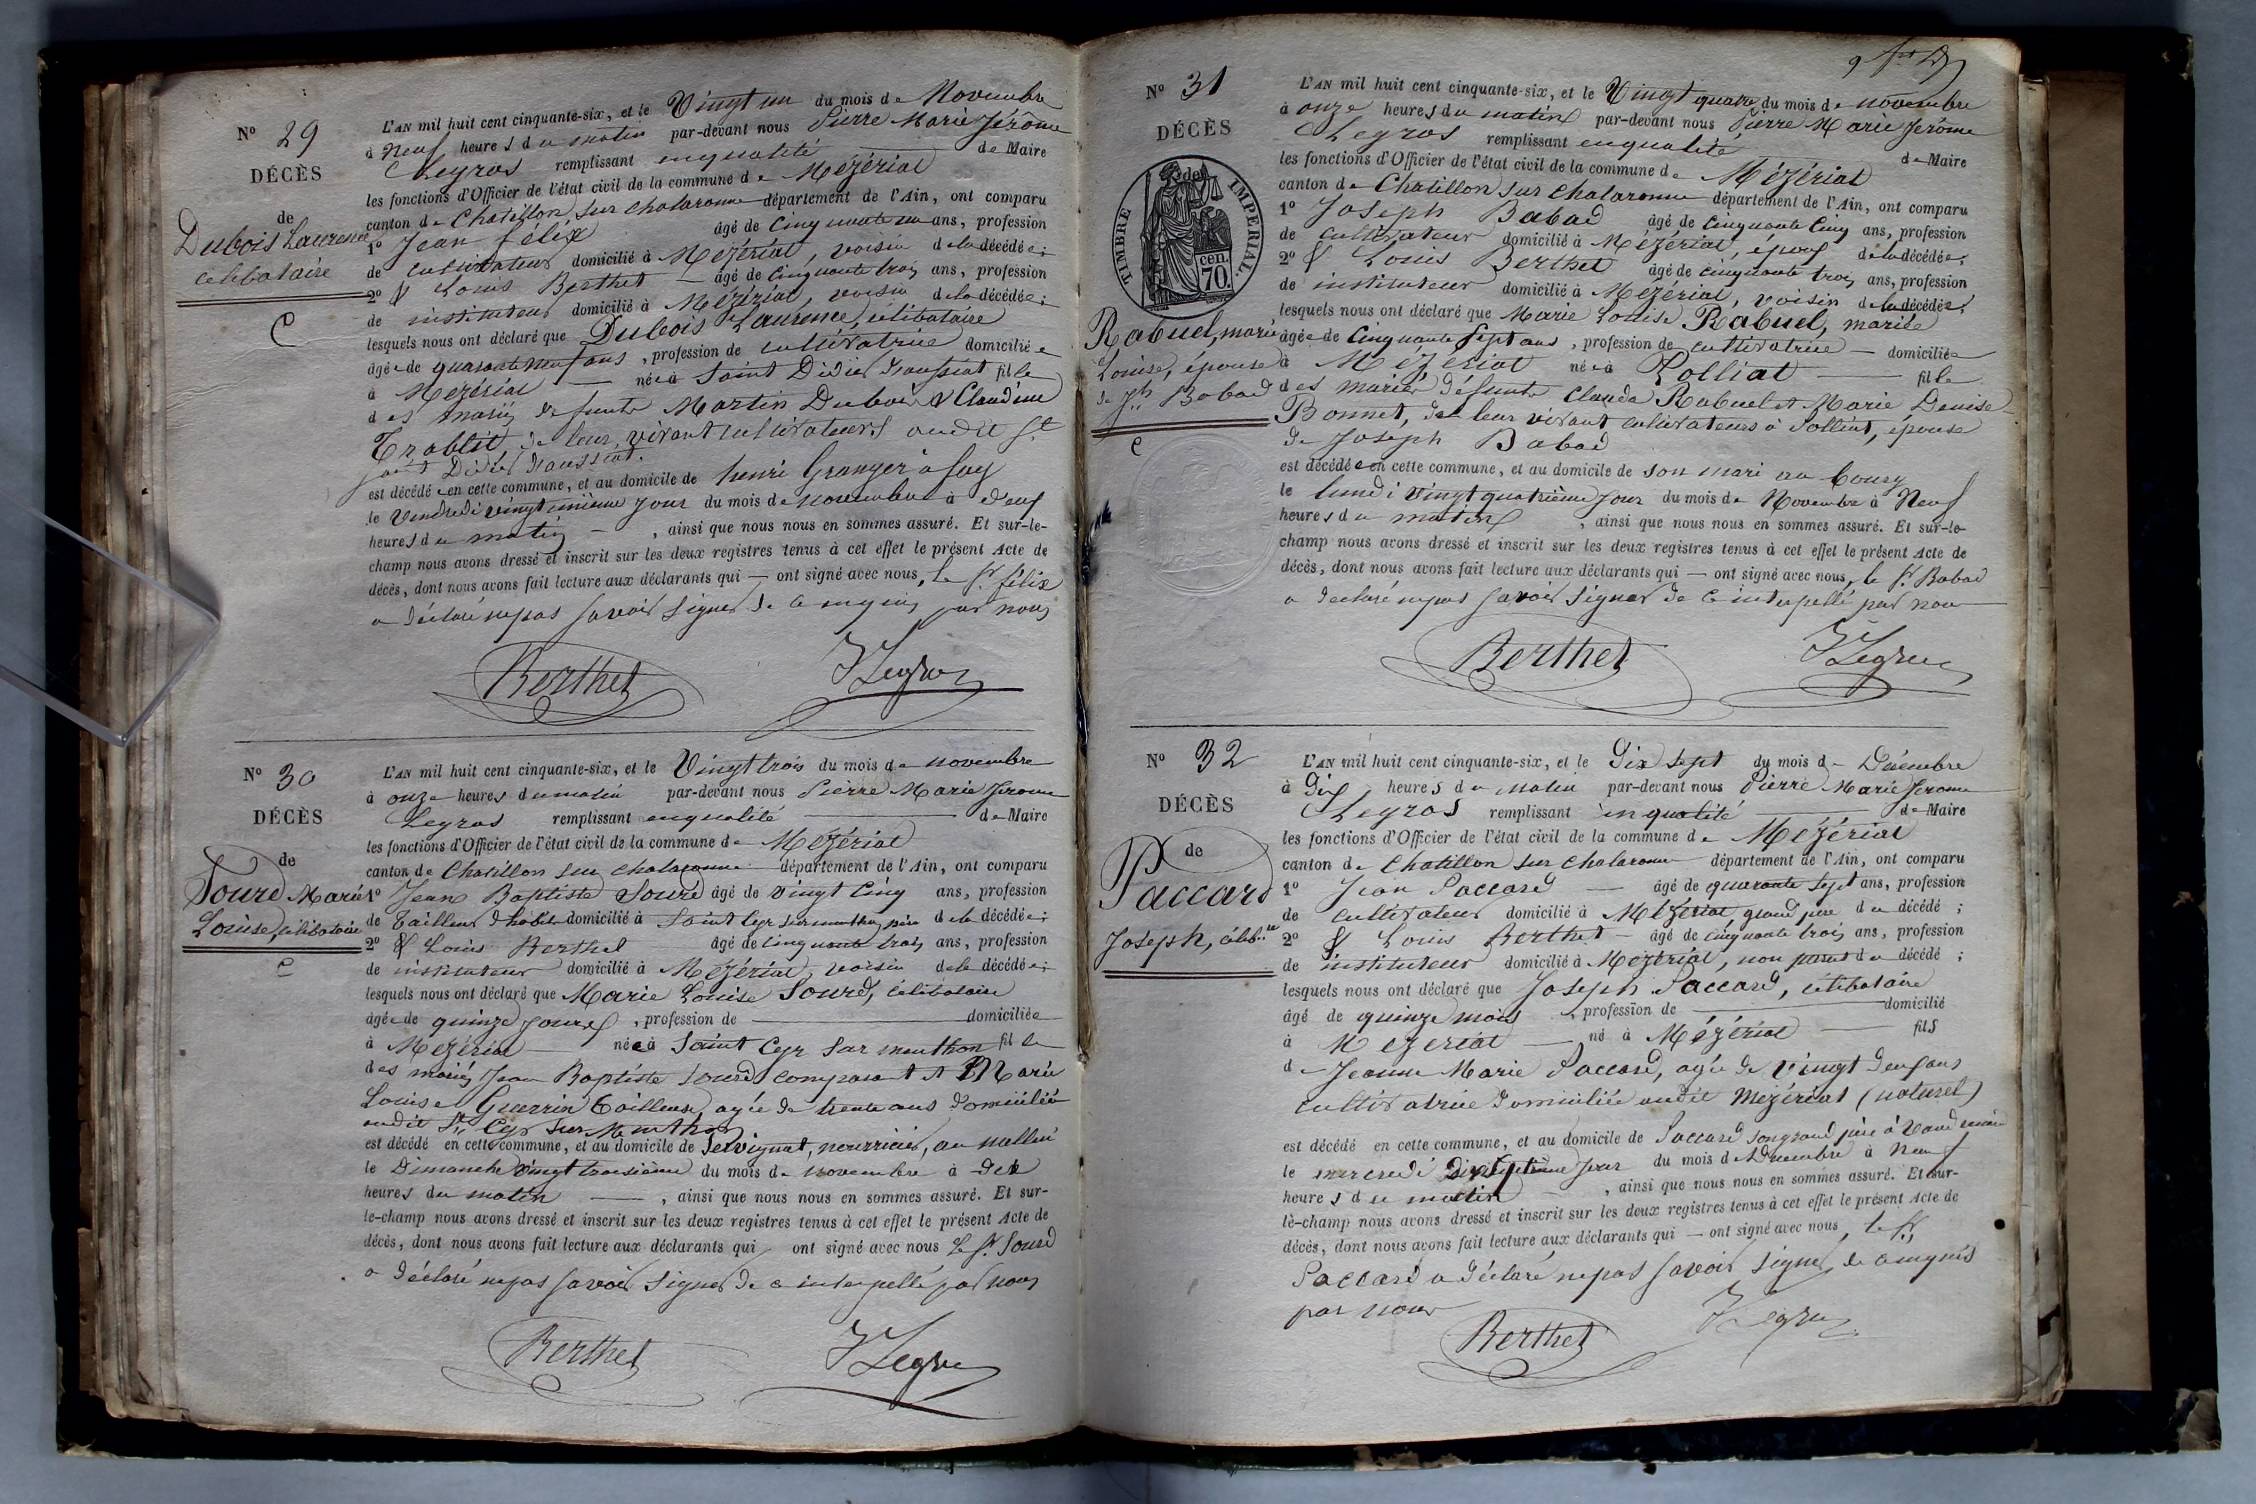 N° 29
DÉCÈS
de
Dubois Laurence
celibataire
C
L'AN mil huit cent cinquante-six, et le Vingt un du mois de Novembre
à Neuf heures du matin par-devant nous Pierre Marie Jérôme
Legras remplissant en qualité de Maire
les fonctions d'Officier de l'état civil de la commune de Mézériat
canton de Chatillon sur chalaronne département de l'Ain, ont comparu
1° Jean félix âgé de Cinquante un ans, profession
de cultivateur domicilié à Mézériat, voisin de la décédée;
2° & Louis Berthet âgé de Cinquante trois ans, profession
de instituteur domicilié à Mézériat, voisin de la décédée;
lesquels nous ont déclaré que Dubois Laurence, célibataire
âgée de quarante neuf ans, profession de cultivatrice domiciliée
à Mézériat née à Saint Didier Daussiat fille
des mariés défunts Martin Dubois & Claudine
Trablit de leur vivant cultivateurs audit St
Didier Daussiat.
est décédée en cette commune, et au domicile de henri Granger à Say
le Vendredi vingt unième jour du mois de novembre à Neuf
heures du matin, ainsi que nous nous en sommes assuré. Et sur-le-
champ nous avons dressé et inscrit sur les deux registres tenus à cet effet le présent Acte de
décès, dont nous avons fait lecture aux déclarants qui — ont signé avec nous, le Sr félix
a déclaré ne pas savoir signer de ce enquis par nous
Berthet JLegras
N° 30
DÉCÈS
de
Sourd Marie
Louise, célibataire
C
L'AN mil huit cent cinquante-six, et le Vingt trois du mois de novembre
à onze heures du matin par-devant nous Pierre Marie Jerome
Legras remplissant en qualité de Maire
les fonctions d'Officier de l'état civil de la commune de Mézériat
canton de Chatillon sur chalaronne département de l'Ain, ont comparu
1° Jean Baptiste Sourd âgé de vingt Cinq ans, profession
de Tailleur d'habits domicilié à Saint Cyr sur menthon, père de la décédée;
2° & Louis Berthet âgé de cinquante trois ans, profession
de instituteur domicilié à Mézériat, voisin de la décédée;
lesquels nous ont déclaré que Marie Louise Sourd, célibataire
âgée de quinze jours, profession de — domiciliée
à Mézériat née à Saint Cyr Sur menthon fille
des mariés Jean Baptiste Sourd comparant et Marie
Louise Guerrin Tailleuse, agée de trente ans domiciliée
audit St Cyr sur Menthon
est décédé en cette commune, et au domicile de Servignat, nourricier, au
le Dimanche vingt troisième du mois de novembre à dix
heures du matin —, ainsi que nous nous en sommes assuré. Et sur-
le-champ nous avons dressé et inscrit sur les deux registres tenus à cet effet le présent Acte de
décès, dont nous avons fait lecture aux déclarants qui ont signé avec nous Le Sr Sourd
a déclaré ne pas savoir signer de ce interpellé par nous
Berthet JLegras
9
N° 31
DÉCÈS
de
TIMBRE IMPERIAL.
cen.
70.
Rabuel, marie
Louise, épouse
de Jh Babad
C
L'AN mil huit cent cinquante-six, et le Vingt quatre du mois de novembre
à onze heures du matin par-devant nous Pierre Marie Jerôme
Legras remplissant en qualité de Maire
les fonctions d'Officier de l'état civil de la commune de Mézériat
canton de Chatillon sur chalaronne département de l'Ain, ont comparu
1° Joseph Babad âgé de cinquante Cinq ans, profession
de cultivateur domicilié à Mézériat, époux de la décédée;
2° & Louis Berthet âgé de cinquante trois ans, profession
de instituteur domicilié à Mézériat, voisin de la décédée;
lesquels nous ont déclaré que Marie Louise Rabuel, mariée
âgée de Cinquante Sept ans, profession de cultivatrice — domiciliée
à Mézériat née à Polliat fille
des mariés défunts Claude Rabuel et Marie Denise
Bonnet, de leur vivant cultivateurs à Polliat, épouse
de Joseph Babad
est décédée en cette commune, et au domicile de son mari au bourg
le lundi vingt quatrième jour du mois de Novembre à Neuf
heures du matin, ainsi que nous nous en sommes assuré. Et sur-le-
champ nous avons dressé et inscrit sur les deux registres tenus à cet effet le présent Acte de
décès, dont nous avons fait lecture aux déclarants qui — ont signé avec nous, le Sr Babad
a déclaré ne pas savoir signer de ce interpellé par nous
Berthet JLegras
N° 32
DÉCÈS
de
Paccard
Joseph, célibre
L'AN mil huit cent cinquante-six, et le Dix sept du mois de Décembre
à Dix heures du matin par-devant nous Pierre Marie Jerome
Legras remplissant en qualité de Maire
les fonctions d'Officier de l'état civil de la commune de Mézériat
canton de Chatillon sur chalaronne département de l'Ain, ont comparu
1° Jean Paccard — âgé de quarante sept ans, profession
de cultivateur domicilié à Mézériat, grand père du décédé;
2° & Louis Berthet — âgé de cinquante trois ans, profession
de instituteur domicilié à Mézériat, non parent du décédé;
lesquels nous ont déclaré que Joseph Paccard, célibataire
âgé de quinze mois, profession de — domicilié
à Mezeriat — né à Mézériat — fils
de Jeanne Marie Paccard, agée de vingt deux ans
cultivatrice domiciliée audit Mézériat (naturel)
est décédé en cette commune, et au domicile de Paccard son grand père à
le mercredi Dix septième jour du mois de Décembre à Neuf
heures du matin, ainsi que nous nous en sommes assuré. Et sur-
le-champ nous avons dressé et inscrit sur les deux registres tenus à cet effet le présent Acte de
décès, dont nous avons fait lecture aux déclarants qui — ont signé avec nous, le Sr
Paccard a déclaré ne pas savoir signer, de ce enquis
par nous
Berthet JLegras